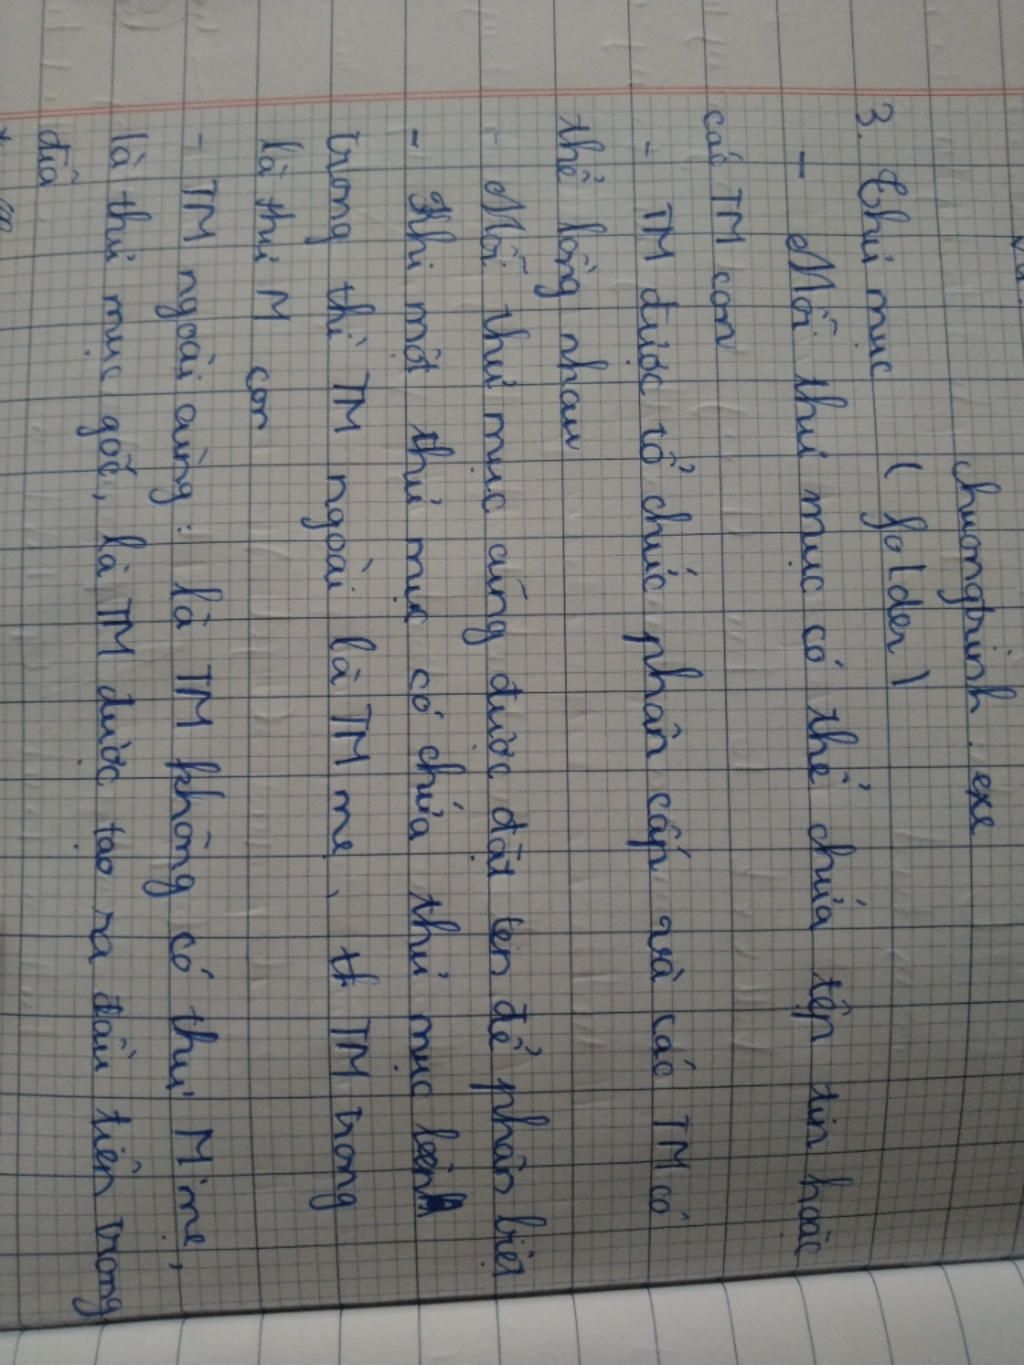 chuongtrinh.exe
3. Thư mục ( folder )
- Mỗi thư mục có thể chứa tệp tin hoặc
các TM con
- TM được tổ chức phân cấp và các TM có
thể lồng nhau
- Mỗi thư mục cũng được đặt tên để phân biệt
- Khi một thư mục có chứa thư mục bên
trong thì TM ngoài là TM mẹ, th TM trong
là thư M con
- TM ngoài cùng : là TM không có thư M mẹ,
là thư mục gốc, là TM được tạo ra đầu tiên trong
đĩa